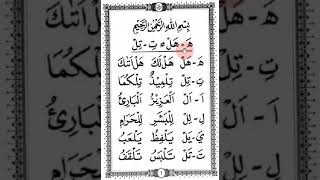 بِسْمِ اللهِ الرَّحْمٰنِ الرَّحِيْمِ
هَ - هَلْ ٥ تِ - تِلْ
هَ - هَلْ هَلْ لَكَ هَلْ اَتٰكَ
تِ - تِلْ تِلْمِيْذٌ تِلْكُمَا
اَ - اَلْ اَلْعَزِيْزُ اَلْبَارِئُ
لِ - لِلْ لِلْبَشَرِ لِلْحَرَامِ
يَ - يَلْ يَلْفِظُ يَلْعَبُ
تَ - تَلْ تَلْبَسُ تَلْقَفُ